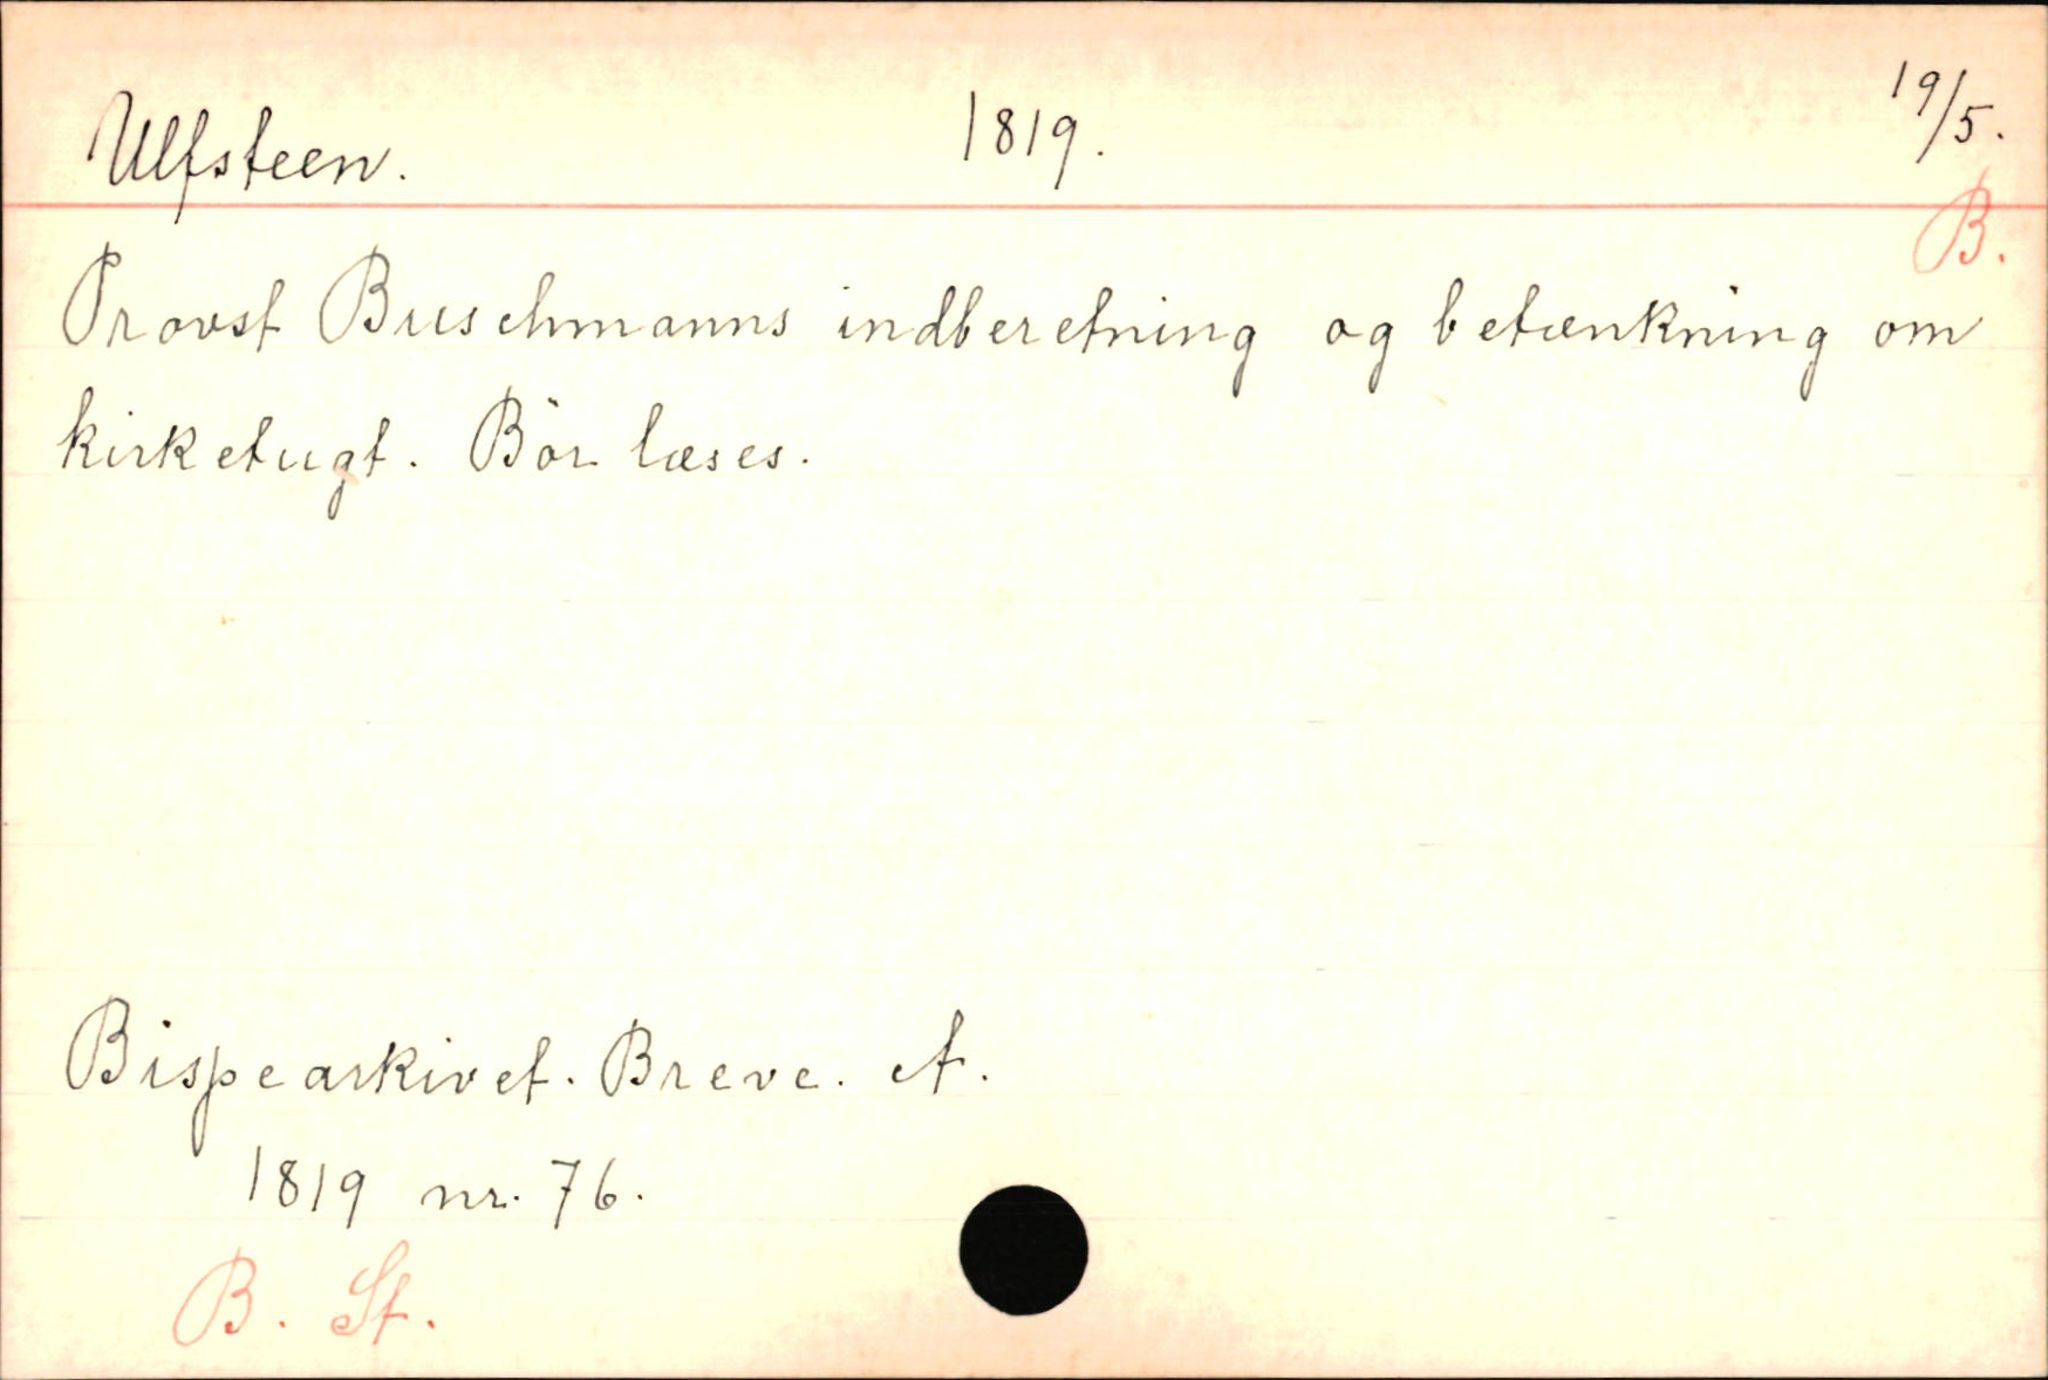 Ulfsteen. 1819. 19/5.
B.
Provst Buschmanns indberetning og betænkning om
kirketugt. Bör læses.
Bispearkivet. Breve. A.
1819 nr. 76.
B. St.